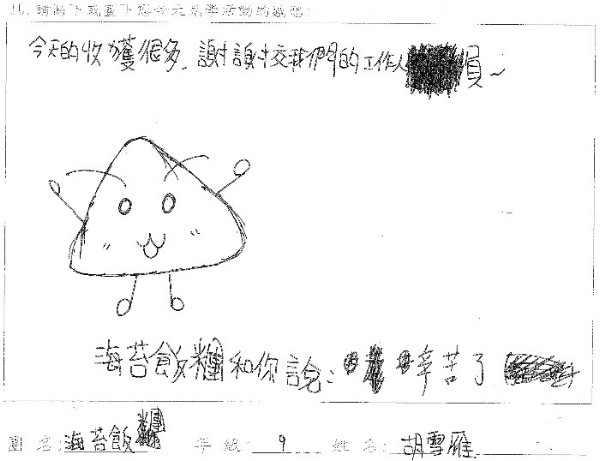 11. 請寫下或畫下您今天見學活動的感想:
今天的收獲很多,謝謝教我們的工作人員~
海苔飯糰和你說:辛苦了
團名:海苔飯糰 年級:9 姓名:胡雪雁